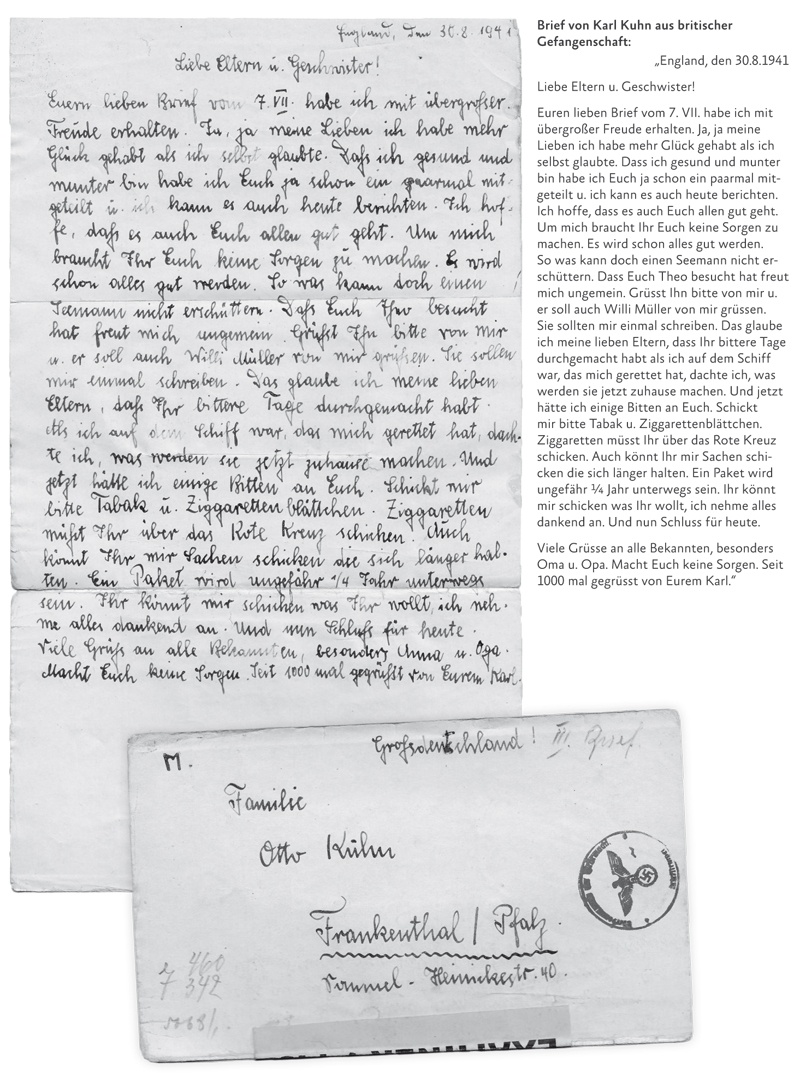 England, den 30.8.1941
Liebe Eltern u. Geschwister!
Euern lieben Brief vom 7. VII. habe ich mit übergrosser
Freude erhalten. Ja, ja meine Lieben ich habe mehr
Glück gehabt als ich selbst glaubte. Dass ich gesund und
munter bin habe ich Euch ja schon ein paarmal mit-
geteilt u. ich kann es auch heute berichten. Ich hof-
fe, dass es auch Euch allen gut geht. Um mich
braucht Ihr Euch keine Sorgen zu machen. Es wird
schon alles gut werden. So was kann doch einen
Seemann nicht erschüttern. Dass Euch Theo besucht
hat freut mich ungemein. Grüsst Ihn bitte von mir
u. er soll auch Willi Müller von mir grüssen. Sie sollen
mir einmal schreiben. Das glaube ich meine lieben
Eltern, dass Ihr bittere Tage durchgemacht habt.
Als ich auf dem Schiff war, das mich gerettet hat, dach-
te ich, was werden sie jetzt zuhause machen. Und
jetzt hätte ich einige Bitten an Euch. Schickt mir
bitte Tabak u. Ziggarettenblättchen. Ziggaretten
müsst Ihr über das Rote Kreuz schicken. Auch
könnt Ihr mir Sachen schicken die sich länger hal-
ten. Ein Paket wird ungefähr 1/4 Jahr unterwegs
sein. Ihr könnt mir schicken was Ihr wollt, ich neh-
me alles dankend an. Und nun Schluss für heute.
Viele Grüss an alle Bekannten, besonders u.
Macht Euch keine Sorgen. Seit 1000 mal gegrüsst von Eurem Karl.
Brief von Karl Kuhn aus britischer
Gefangenschaft:
„England, den 30.8.1941
Liebe Eltern u. Geschwister!
Euren lieben Brief vom 7. VII. habe ich mit
übergroßer Freude erhalten. Ja, ja meine
Lieben ich habe mehr Glück gehabt als ich
selbst glaubte. Dass ich gesund und munter
bin habe ich Euch ja schon ein paarmal mit-
geteilt u. ich kann es auch heute berichten.
Ich hoffe, dass es auch Euch allen gut geht.
Um mich braucht Ihr Euch keine Sorgen zu
machen. Es wird schon alles gut werden.
So was kann doch einen Seemann nicht er-
schüttern. Dass Euch Theo besucht hat freut
mich ungemein. Grüsst Ihn bitte von mir u.
er soll auch Willi Müller von mir grüssen.
Sie sollten mir einmal schreiben. Das glaube
ich meine lieben Eltern, dass Ihr bittere Tage
durchgemacht habt als ich auf dem Schiff
war, das mich gerettet hat, dachte ich, was
werden sie jetzt zuhause machen. Und jetzt
hätte ich einige Bitten an Euch. Schickt
mir bitte Tabak u. Ziggarettenblättchen.
Ziggaretten müsst Ihr über das Rote Kreuz
schicken. Auch könnt Ihr mir Sachen schi-
cken die sich länger halten. Ein Paket wird
ungefähr ¼ Jahr unterwegs sein. Ihr könnt
mir schicken was Ihr wollt, ich nehme alles
dankend an. Und nun Schluss für heute.
Viele Grüsse an alle Bekannten, besonders
Oma u. Opa. Macht Euch keine Sorgen. Seit
1000 mal gegrüsst von Eurem Karl.“
Grossdeutschland! III. Brief.
M.
Familie
Otto Kuhn
Frankenthal / Pfalz.
Heinickestr. 40.
460
7 342